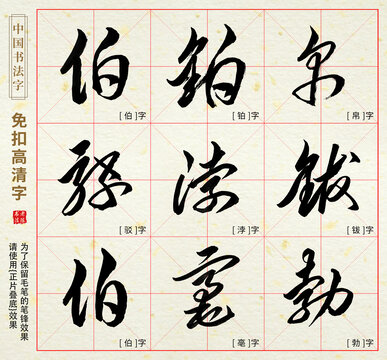 中国书法字
免扣高清字
为了保留毛笔的笔锋效果
请使用[正片叠底]效果
伯 铂 帛
[伯]字 [铂]字 [帛]字
驳 浡 钹
[驳]字 [浡]字 [钹]字
伯 亳 勃
[伯]字 [亳]字 [勃]字